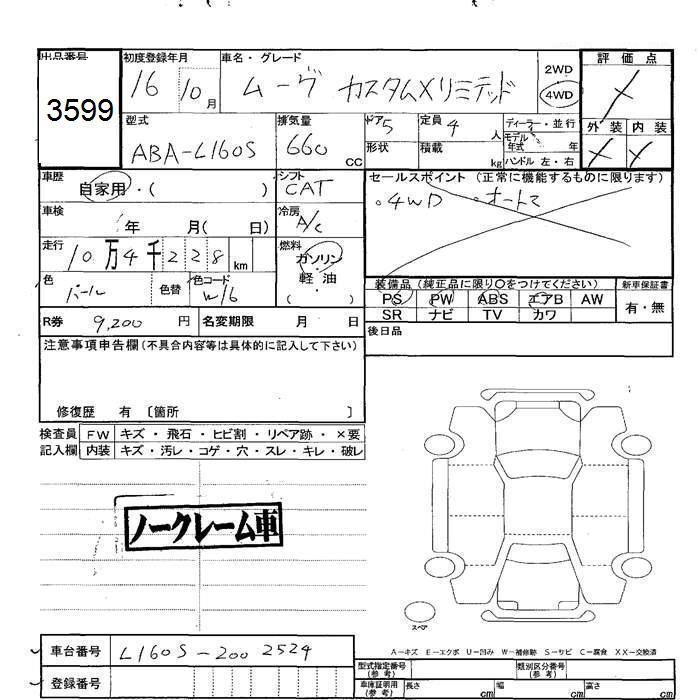 出品番号 初度登録年月 車名・グレード 2WD 評価点
3599 16 10月 ムーヴ カスタムXリミテッド 4WD
型式 排気量 ドア 5 定員 4人 ディーラー・並行 外装 内装
ABA-L160S 660 CC 形状 積載 kg モデル年式 年
ハンドル 左・右
車歴 シフト セールスポイント (正常に機能するものに限ります)
自家用・( ) CAT 。4WD 。オートマ
車検 年 月( 日) 冷房 A/C
走行 10万4千228km 燃料 ガソリン・軽油 ( )
色 パール 色替 色コード W16
装備品 (純正品に限り○をつけてください) 新車保証書
PS PW ABS エアB AW 有・無
SR ナビ TV カワ
R券 9,200円 名変期限 月 日 後日品
注意事項申告欄(不具合内容等は具体的に記入して下さい)
修復歴 有 〔箇所 〕
検査員 FW キズ・飛石・ヒビ割・リペア跡・×要
記入欄 内装 キズ・汚レ・コゲ・穴・スレ・キレ・破レ
ノークレーム車
スペア
A-キズ E-エクボ U-凹み W-補修跡 S-サビ C-腐食 XX-交換済
車台番号 L160S-200 2524
登録番号
型式指定番号 (参考) 類別区分番号 (参考)
車庫証明用 (参考) 長さ cm 幅 cm 高さ cm